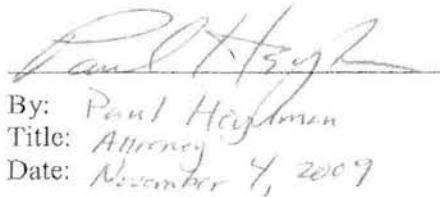 Paul Heylman
By: Paul Heylman
Title: Attorney
Date: November 4, 2009